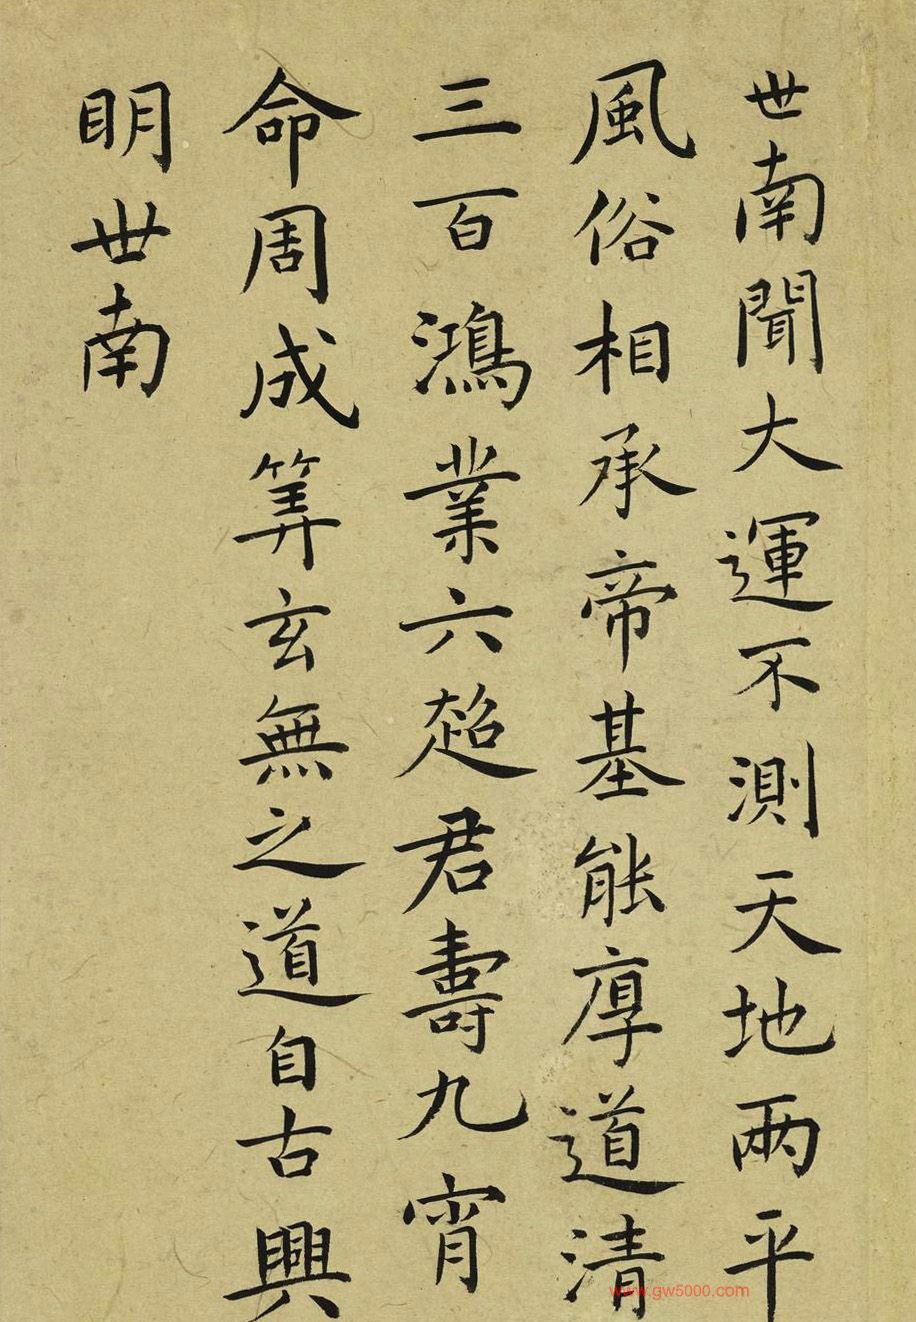 世南聞大運不測天地兩平
風俗相承帝基能厚道清
三百鴻業六超君壽九霄
命周成筭玄無之道自古興
明世南
www.gw5000.com